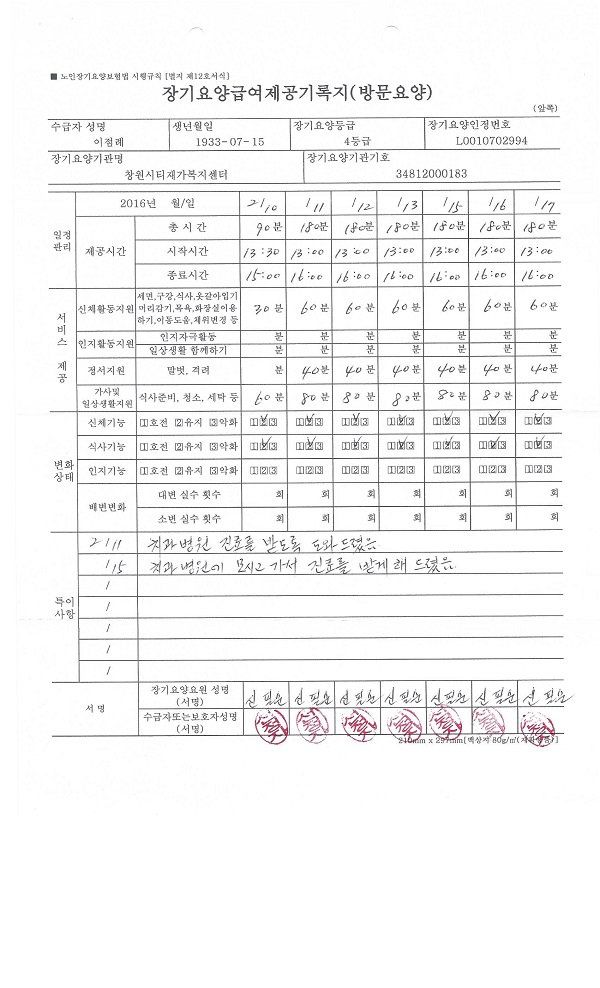 ■ 노인장기요양보험법 시행규칙 [별지 제12호서식]
장기요양급여제공기록지(방문요양)
(앞쪽)
수급자 성명 생년월일 장기요양등급 장기요양인정번호
이점례 1933-07-15 4등급 L0010702994
장기요양기관명 장기요양기관기호
창원시티재가복지센터 34812000183
일정관리 2016년 월/일 2/10 /11 /12 /13 /15 /16 /17
제공시간 총 시 간 90분 180분 180분 180분 180분 180분 180분
시작시간 13:30 13:00 13:00 13:00 13:00 13:00 13:00
종료시간 15:00 16:00 16:00 16:00 16:00 16:00 16:00
서비스 제공 신체활동지원 세면,구강,식사,옷갈아입기 머리감기,목욕,화장실이용하기,이동도움,체위변경 등 30분 60분 60분 60분 60분 60분 60분
인지활동지원 인지자극활동 분 분 분 분 분 분 분
일상생활 함께하기 분 분 분 분 분 분 분
정서지원 말벗, 격려 분 40분 40분 40분 40분 40분 40분
가사및 일상생활지원 식사준비, 청소, 세탁 등 60분 80분 80분 80분 80분 80분 80분
변화상태 신체기능 1호전 2유지 3악화 123 123 123 123 123 123 123
식사기능 1호전 2유지 3악화 123 123 123 123 123 123 123
인지기능 1호전 2유지 3악화 123 123 123 123 123 123 123
배변변화 대변 실수 횟수 회 회 회 회 회 회 회
소변 실수 횟수 회 회 회 회 회 회 회
특이사항 2/11 치과병원 진료를 받도록 도와드렸음
/15 치과병원에 모시고 가서 진료를 받게 해 드렸음
/
/
/
/
서 명 장기요양요원 성명 (서명) 신필순 신필순 신필순 신필순 신필순 신필순 신필순
수급자또는보호자성명 (서명)
210mm x 297mm[백상지 80g/㎡